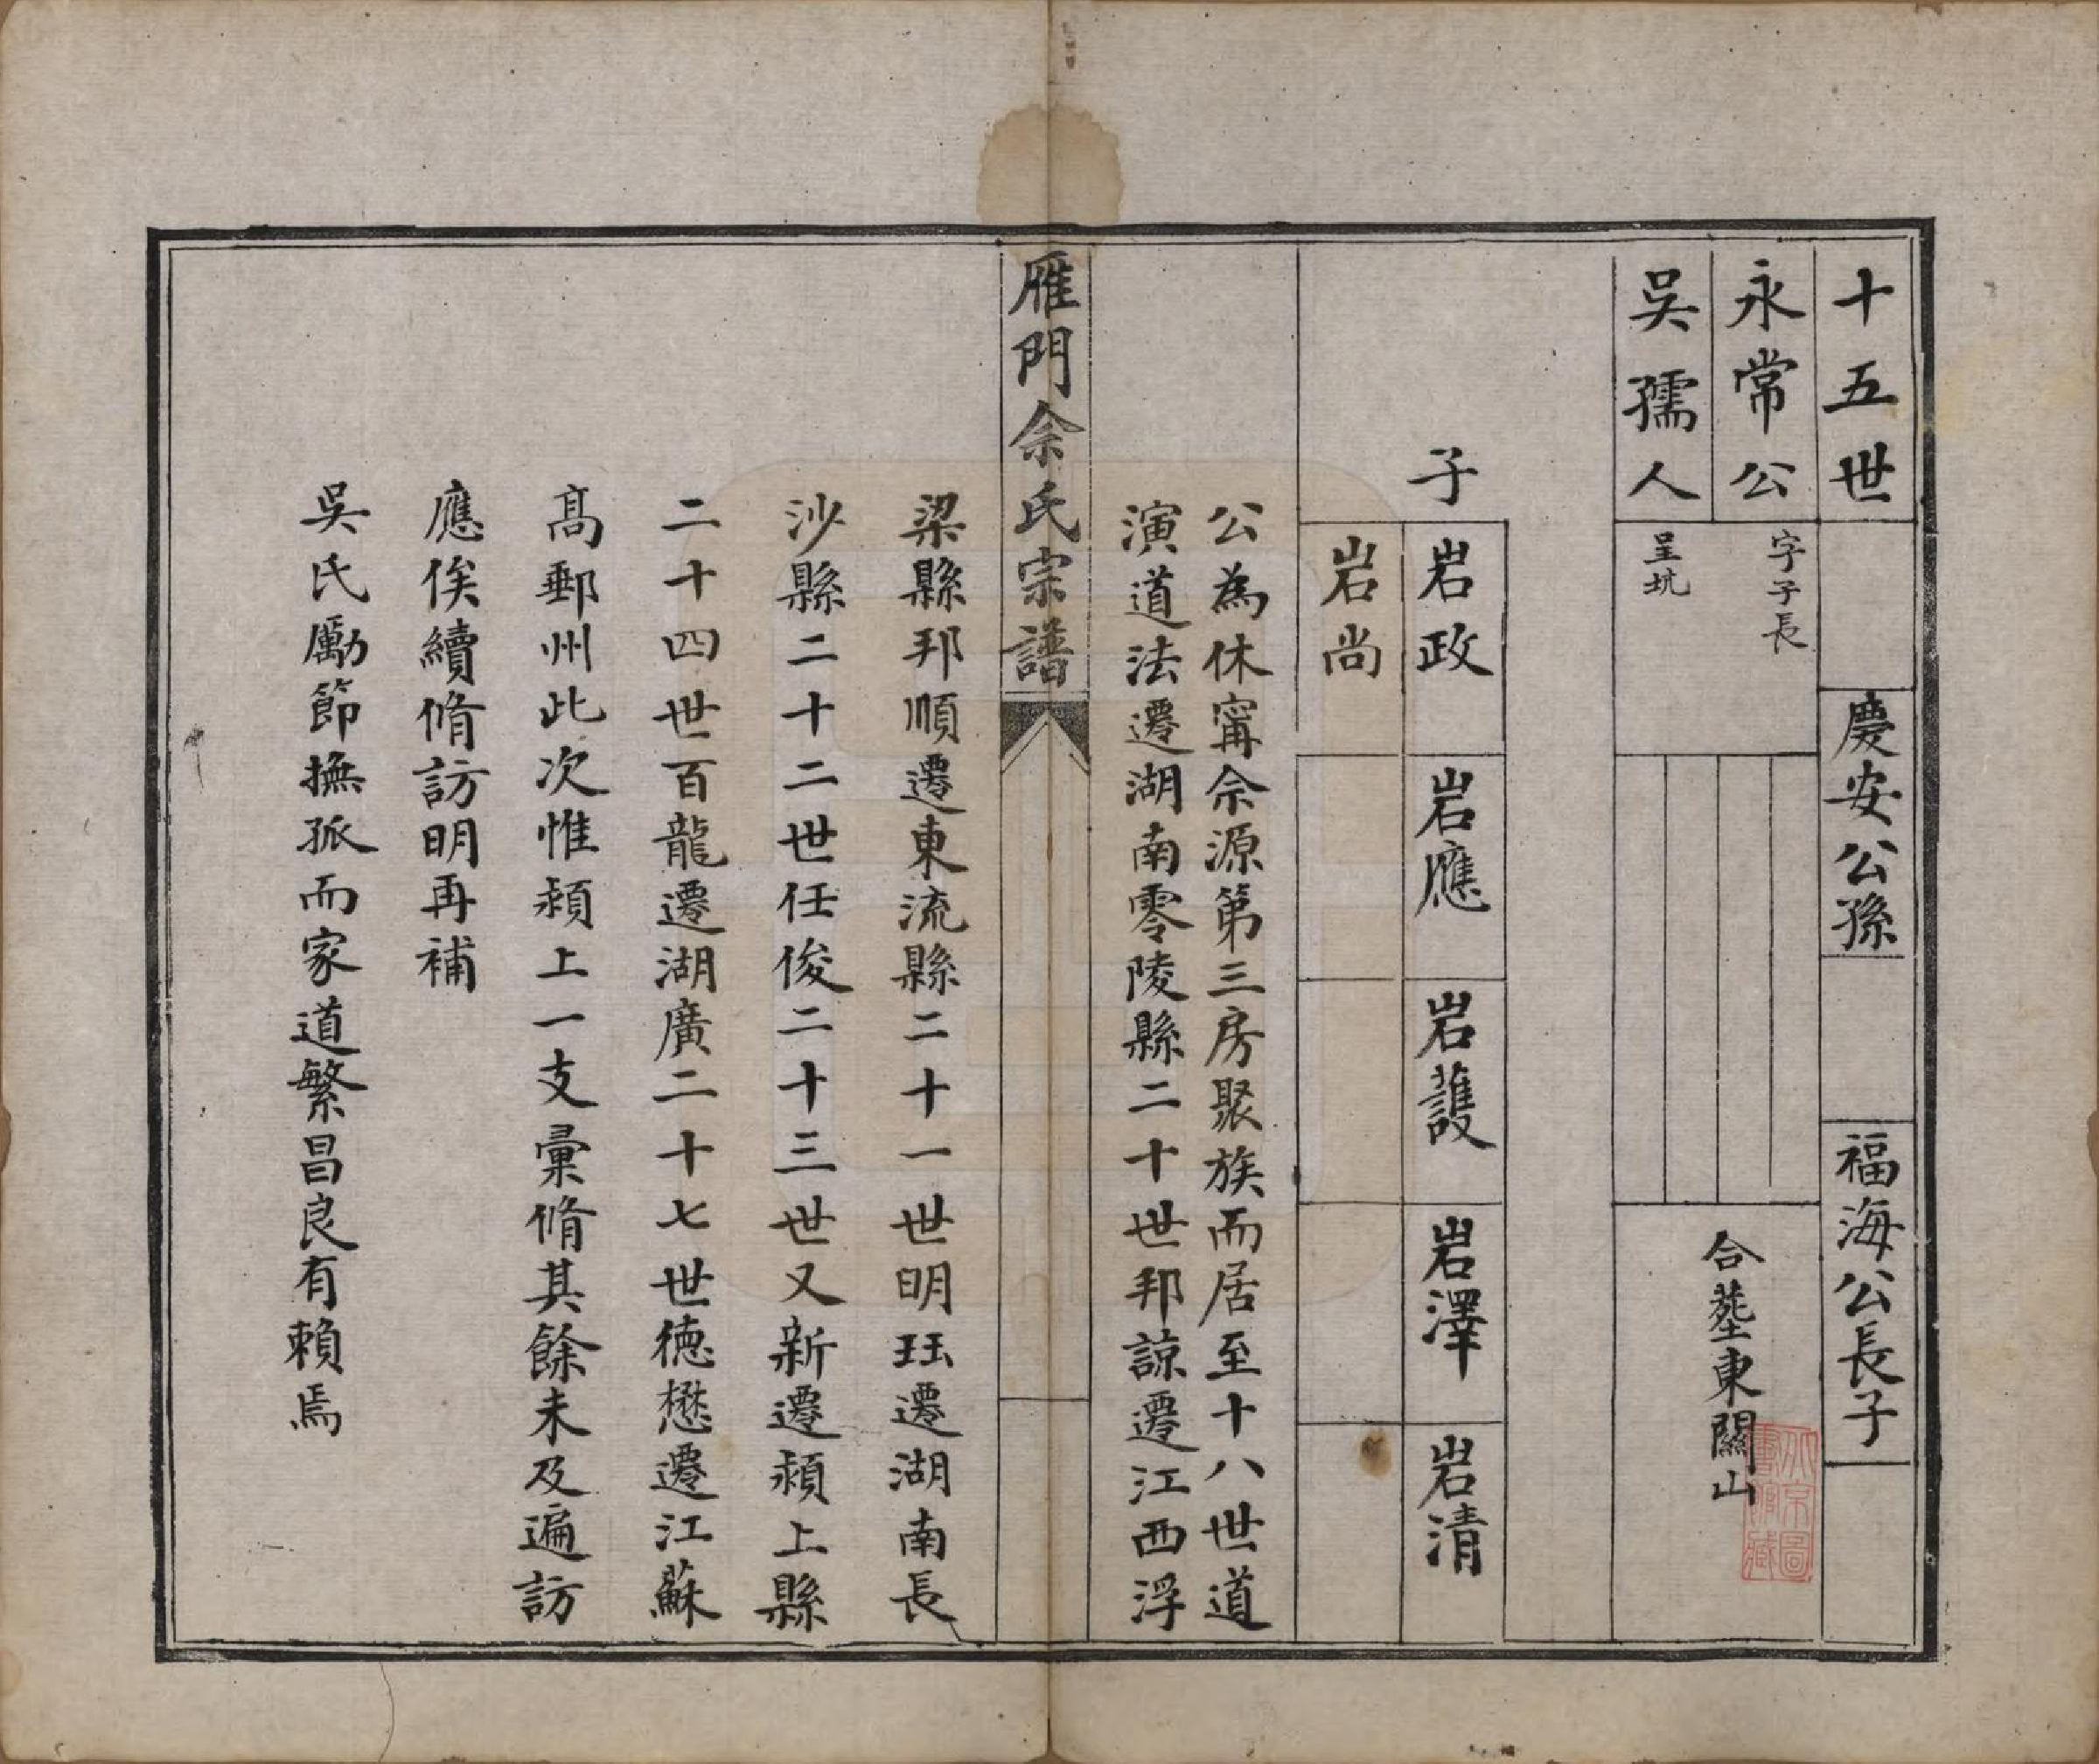 十五世
慶安公孫
福海公長子
永常公
字子長
吳孺人
呈坑
合塟東關山
子
岩政
岩應
岩護
岩澤
岩清
岩尚
公為休甯佘源第三房聚族而居至十八世道
演道法遷湖南零陵縣二十世邦諒遷江西浮
雁門佘氏宗譜
梁縣邦順遷東流縣二十一世明玨遷湖南長
沙縣二十二世任俊二十三世又新遷潁上縣
二十四世百龍遷湖廣二十七世德懋遷江蘇
髙郵州此次惟潁上一支彙脩其餘未及遍訪
應俟續脩訪明再補
吳氏勵節撫孤而家道繁昌良有賴焉
北京圖
書館藏